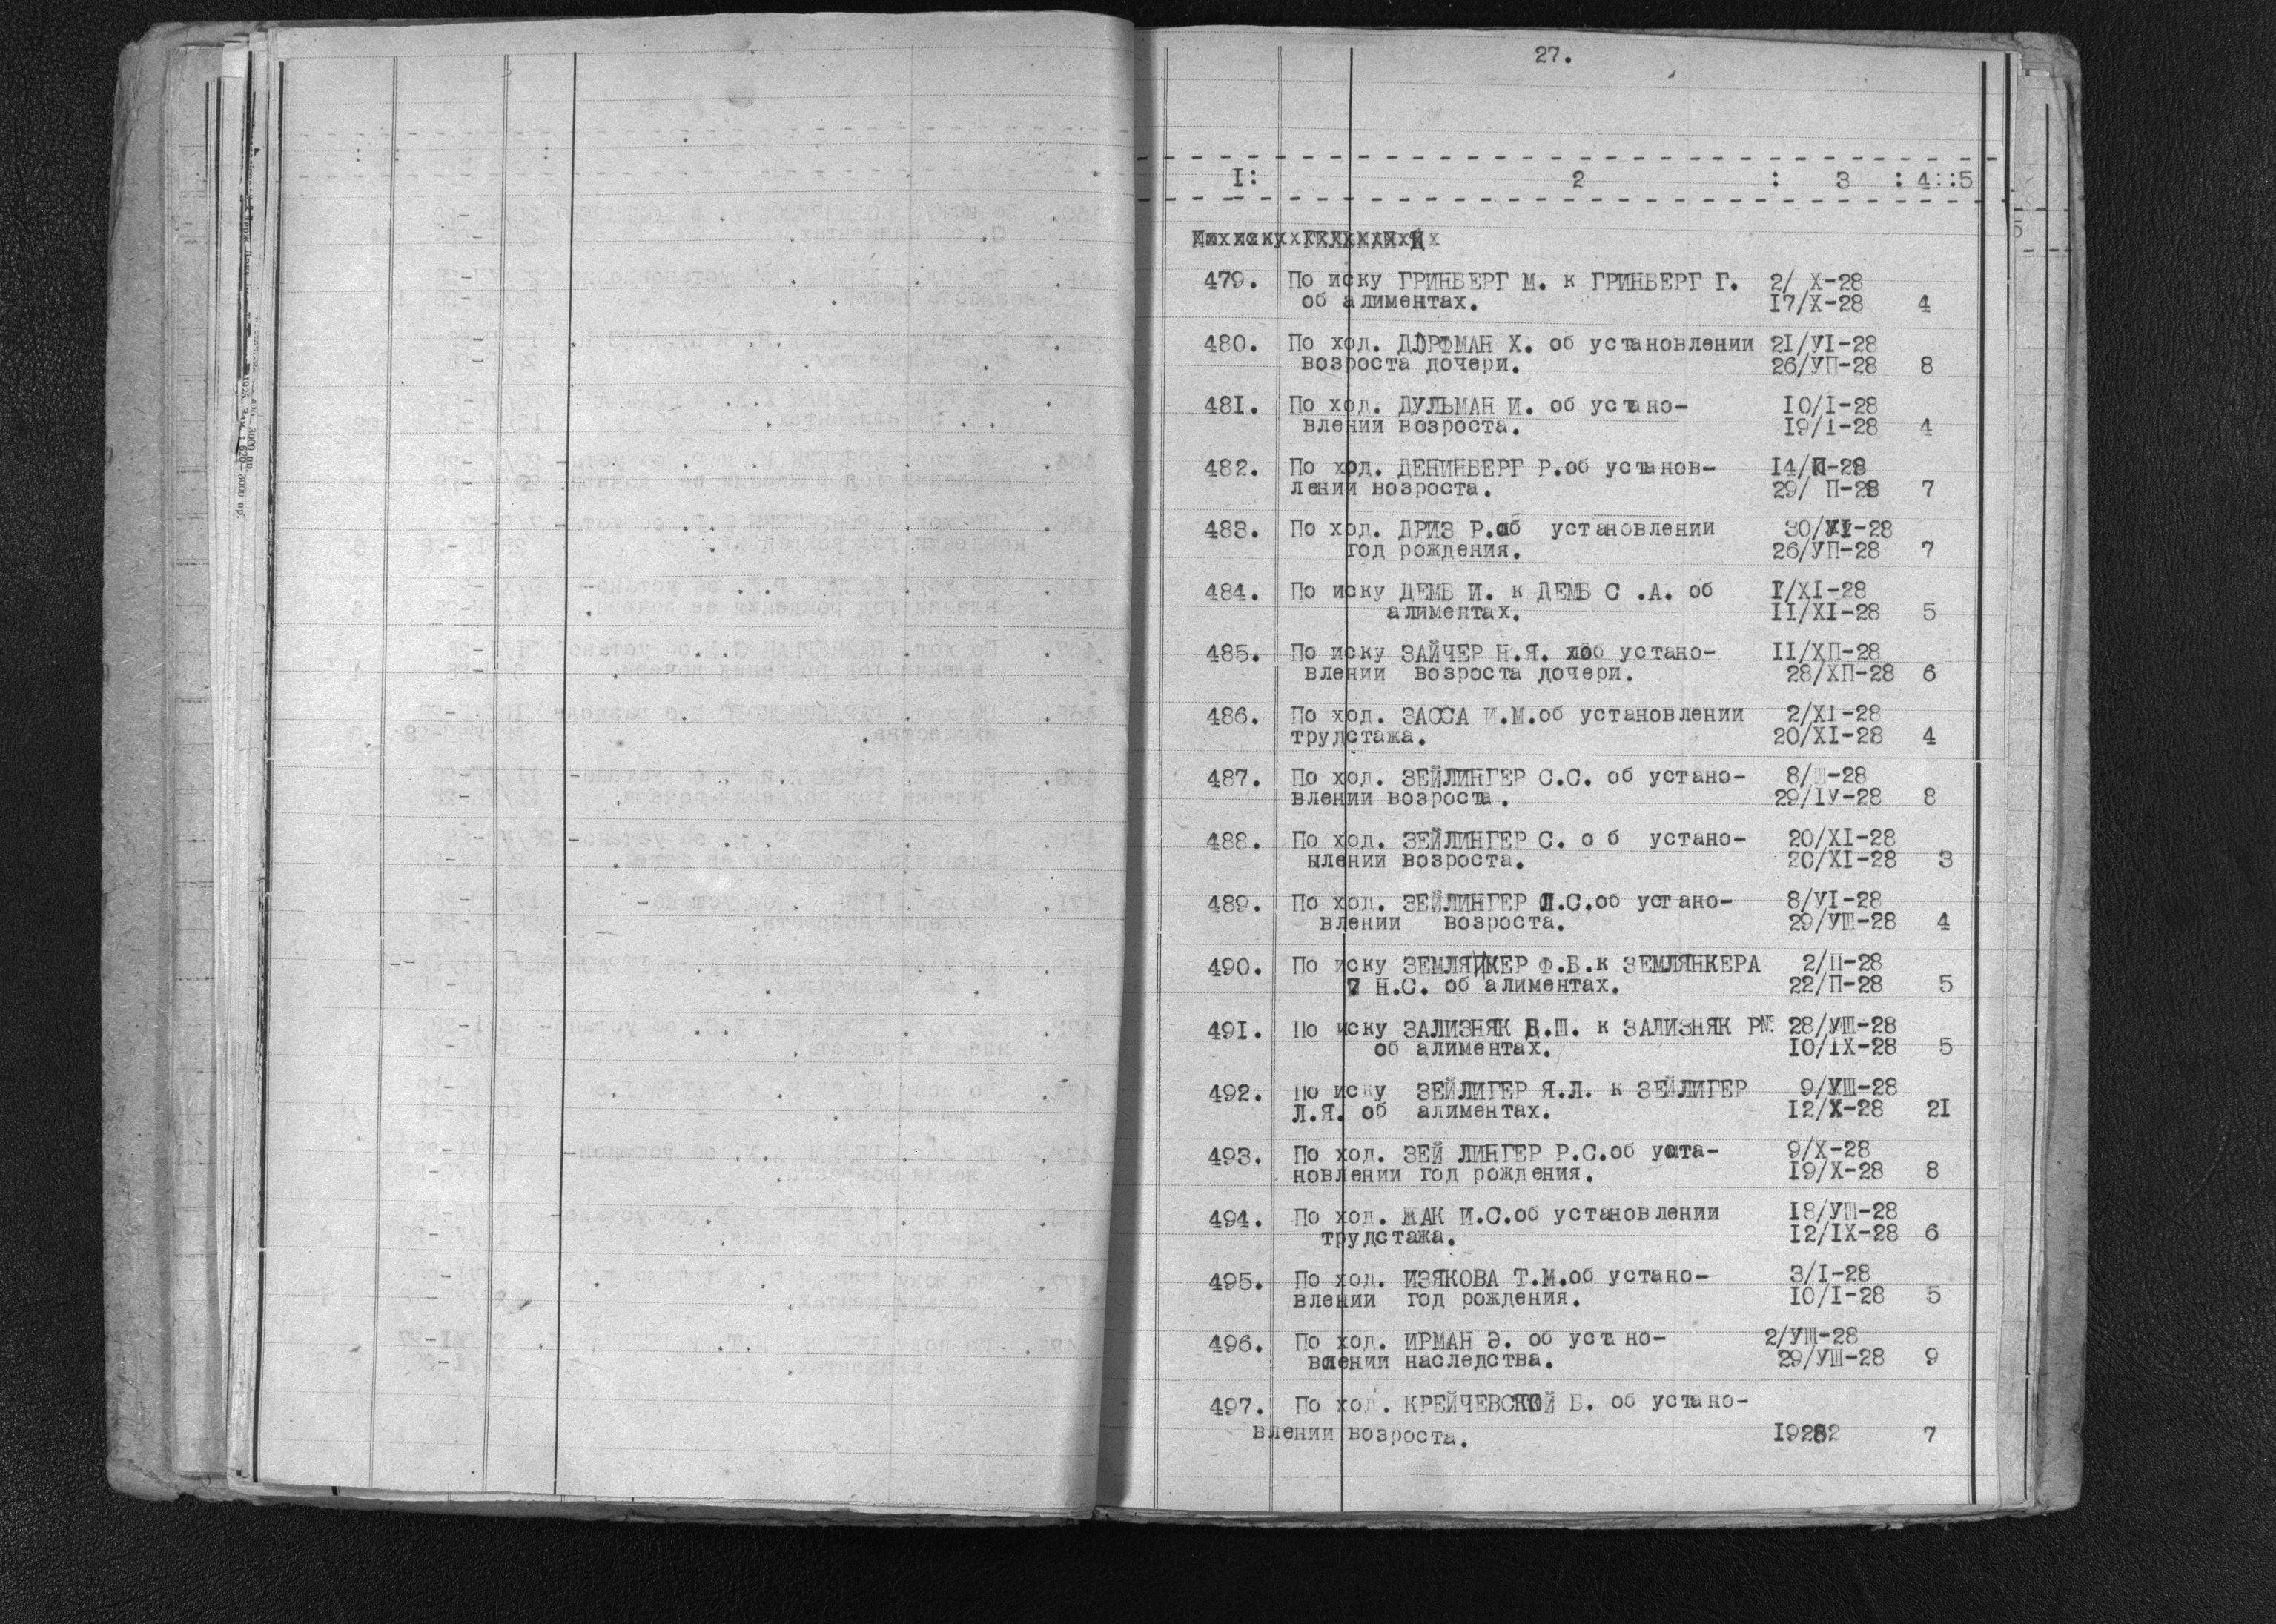 27.
I: 2 : 3 : 4::5
479. По иску ГРИНБЕРГ М. к ГРИНБЕРГ Г. 2/ X-28
об алиментах. 17/X-28 4
480. По ход. ДОРФМАН Х. об установлении 21/УI-28
возроста дочери. 26/УП-28 8
481. По ход. ДУЛЬМАН И. об устано- 10/I-28
влении возроста. 19/I-28 4
482. По ход. ДЕНИНБЕРГ Р.об установ- 14/П-28
лении возроста. 29/ П-28 7
483. По ход. ДРИЗ Р.об установлении 30/УI-28
год рождения. 26/УП-28 7
484. По иску ДЕМБ И. к ДЕМБ С .А. об I/XI-28
алиментах. II/XI-28 5
485. По иску ЗАЙЧЕР Н.Я. об устано- II/ХП-28
влении возроста дочери. 28/ХП-28 6
486. По ход. ЗАССА И.М.об установлении 2/XI-28
трудстажа. 20/XI-28 4
487. По ход. ЗЕЙЛИНГЕР С.С. об устано- 8/Ш-28
влении возроста. 29/IУ-28 8
488. По ход. ЗЕЙЛИНГЕР С. о б устано- 20/XI-28
ылении возроста. 20/XI-28 3
489. По ход. ЗЕЙЛИНГЕР Л.С.об устано- 8/УI-28
влении возроста. 29/УШ-28 4
490. По иску ЗЕМЛЯНКЕР Ф.Б.к ЗЕМЛЯНКЕРА 2/П-28
Н.С. об алиментах. 22/П-28 5
491. По иску ЗАЛИЗНЯК В.Ш. к ЗАЛИЗНЯК 28/УШ-28
об алиментах. 10/IX-28 5
492. По иску ЗЕЙЛИГЕР Я.Л. к ЗЕЙЛИГЕР 9/УШ-28
Л.Я. об алиментах. 12/X-28 21
493. По ход. ЗЕЙ ЛИНГЕР Р.С.об уста- 9/X-28
новлении год рождения. 19/X-28 8
494. По ход. ЖАК И.С.об установлении 18/УШ-28
трудстажа. 12/IX-28 6
495. По ход. ИЗЯКОВА Т.М.об устано- 3/I-28
влении год рождения. 10/I-28 5
496. По ход. ИРМАН Э. об устано- 2/УШ-28
влении наследства. 29/УШ-28 9
497. По ход. КРЕЙЧЕВСКОЙ Б. об устано-
влении возроста. 7